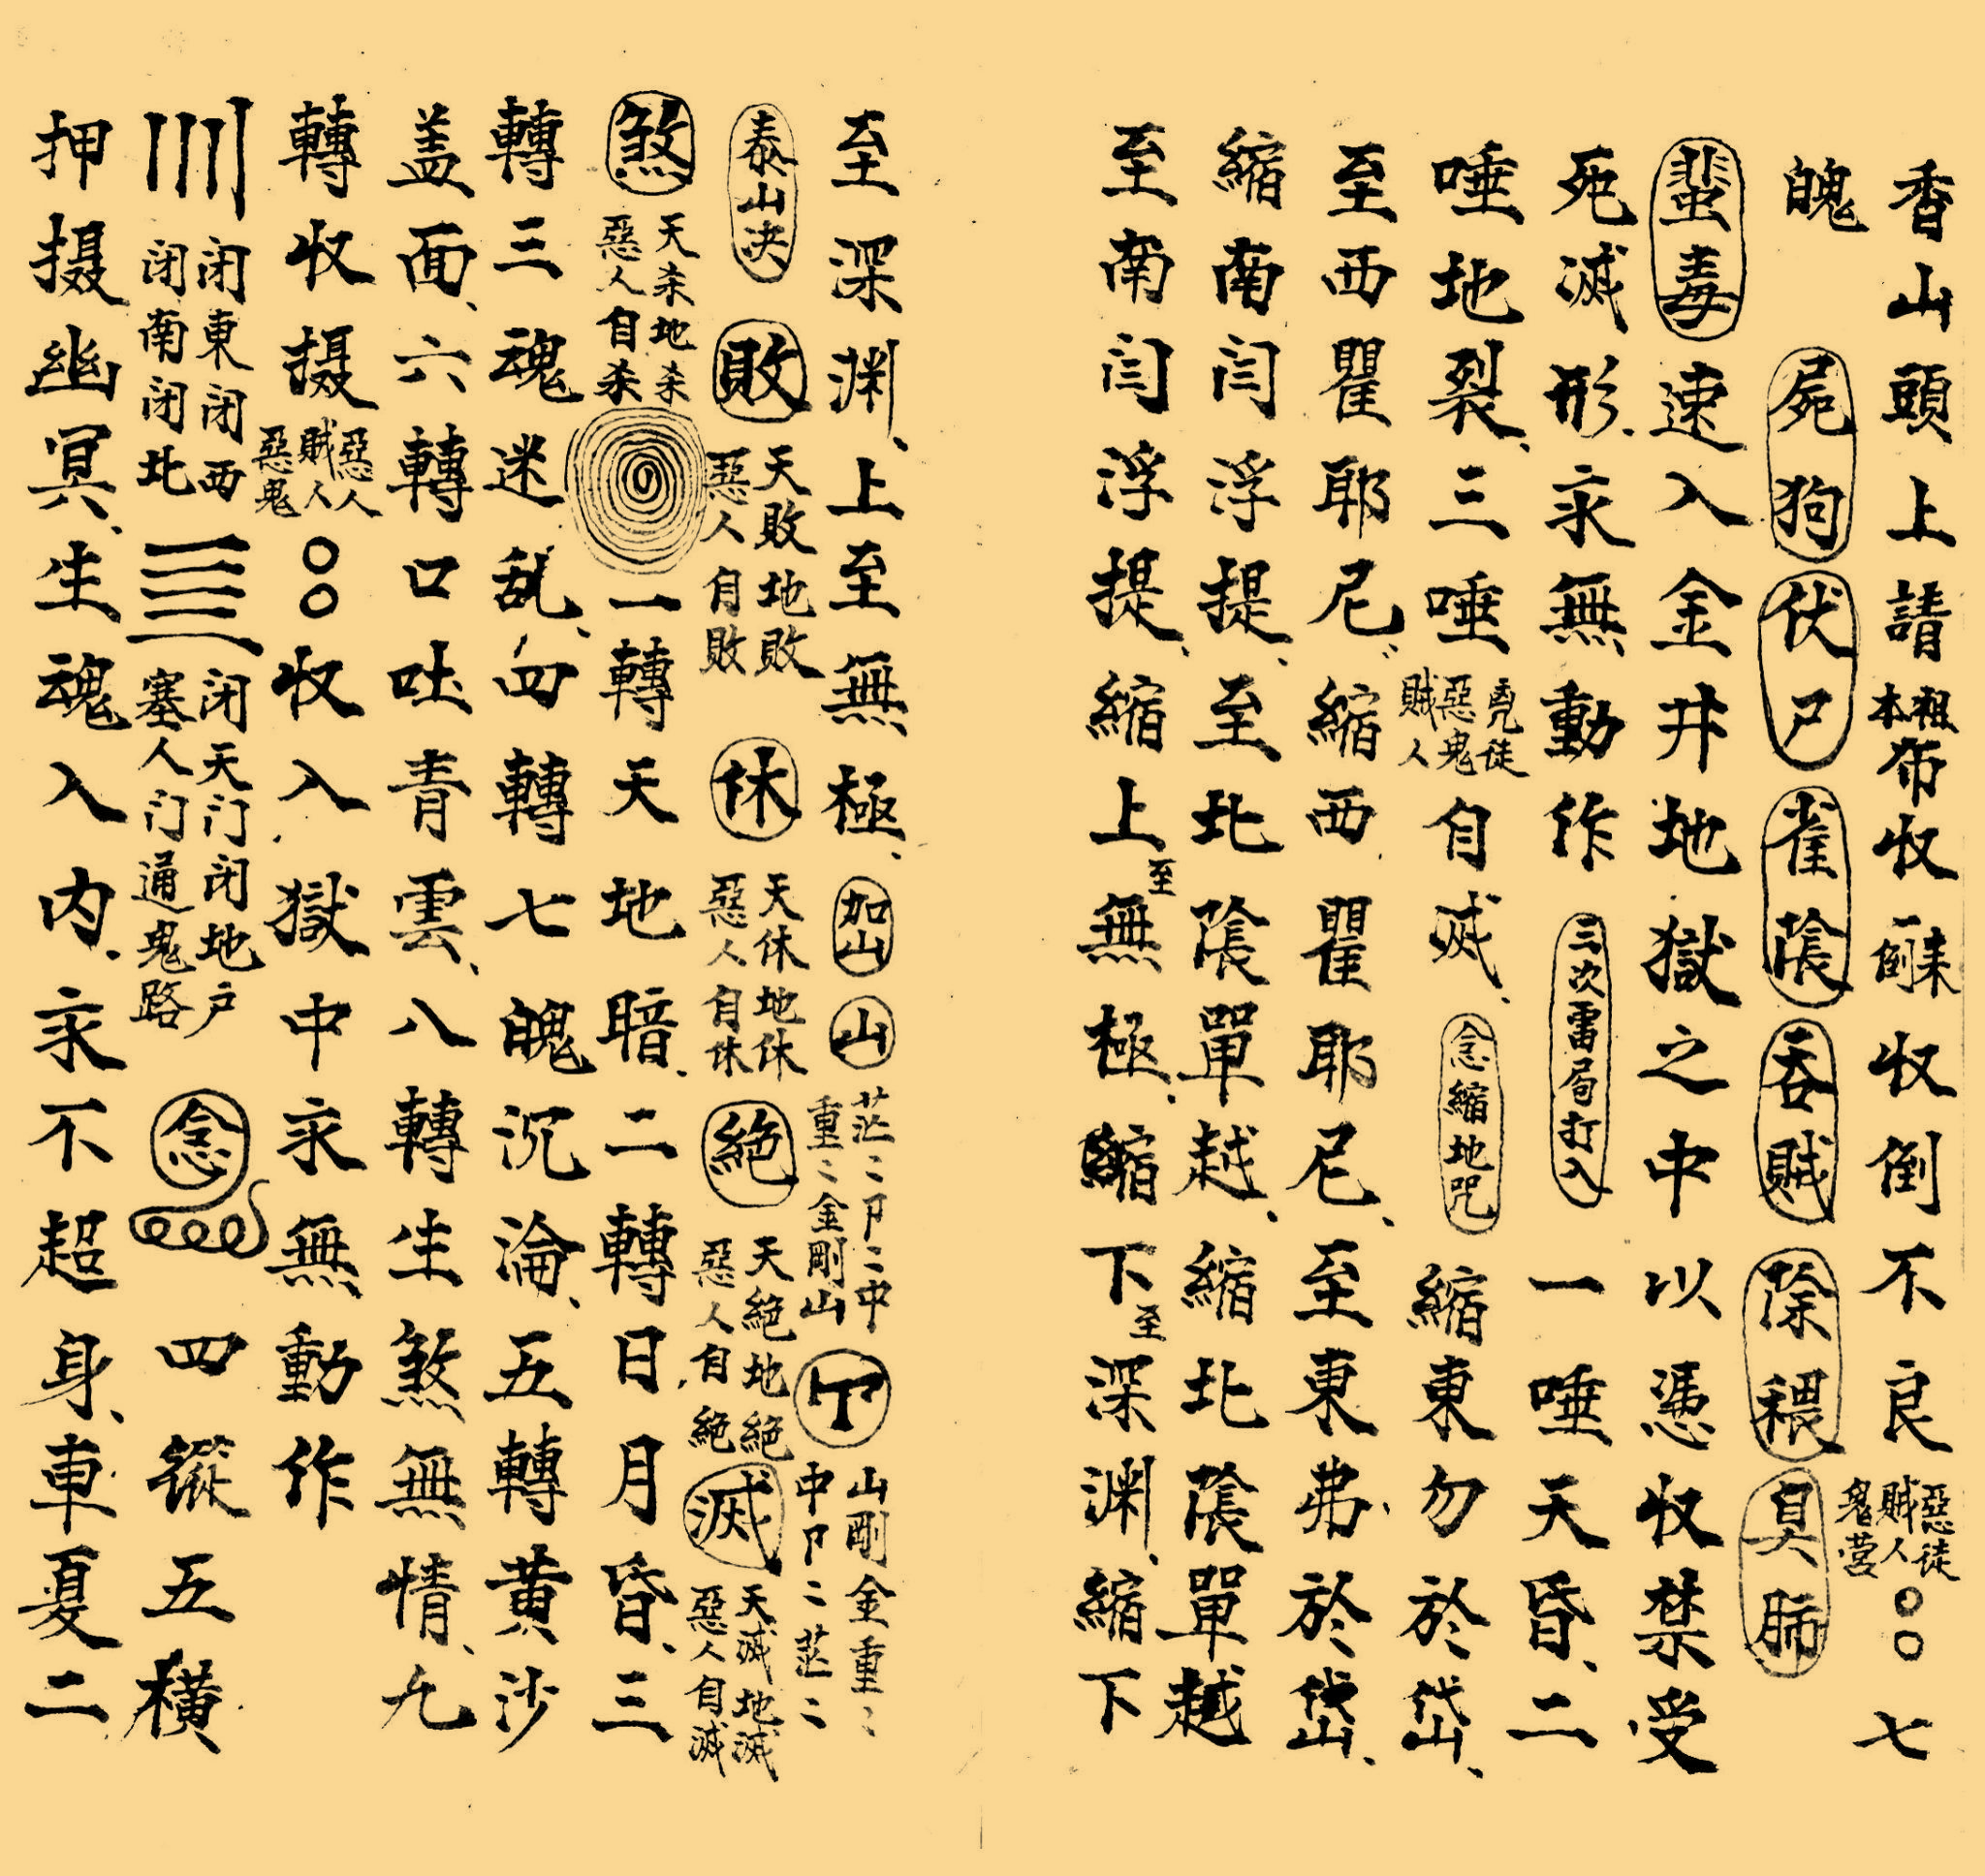 香山頭上請祖本布收來倒收倒不良惡徒賊人鬼营〇〇七
魄 屍狗 伏尸 雀隂 吞賊 除穢 臭肺
蜚毒 速入金井地獄之中以憑收禁受
死滅形、永無動作 三次雷局打入 一唾天昏、二
唾地裂、三唾 兇徒惡鬼賊人 自滅、 念縮地咒 縮東勿於岱、
至西瞿耶尼、縮西瞿耶尼、至東弗於岱、
縮南闫浮提、至北隂單越、縮北隂單越
至南闫浮提、縮上至無極、縮下至深渊、縮下
至深渊、上至無極、 如山 山 茫〻卩〻中重〻金剛山 山剛金重〻中卩〻茫〻
泰山决 敗 天敗地敗惡人自敗 休 天休地休惡人自休 絕 天絕地絕惡人自絕 滅 天滅地滅惡人自滅
煞 天杀地杀惡人自杀 一轉天地暗、二轉日月昏、三
轉三魂迷乱、四轉七魄沉淪、五轉黄沙
盖面、六轉口吐青雲、八轉生煞無情、九
轉收摄 惡人賊人惡鬼 〇〇收入獄中永無動作
闭東闭西闭南闭北 闭天门闭地户塞人门通鬼路 念 四縱五横
押摄幽冥、生魂入内、永不超身、車夏二